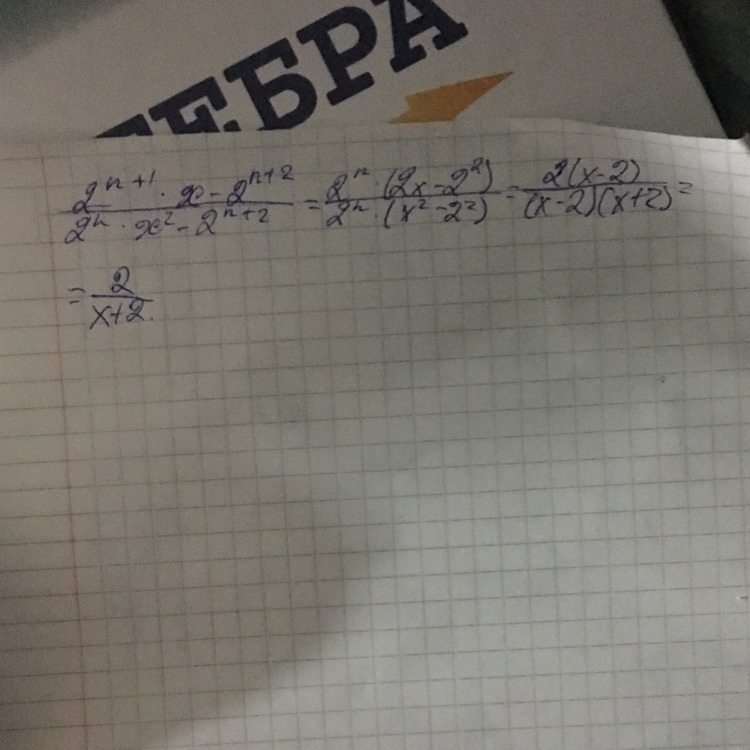 ГЕБРА
\frac{2^{n+1} \cdot x - 2^{n+2}}{2^n \cdot x^2 - 2^{n+2}} = \frac{2^n \cdot (2x - 2^2)}{2^n \cdot (x^2 - 2^2)} = \frac{2(x-2)}{(x-2)(x+2)} =
= \frac{2}{x+2}.